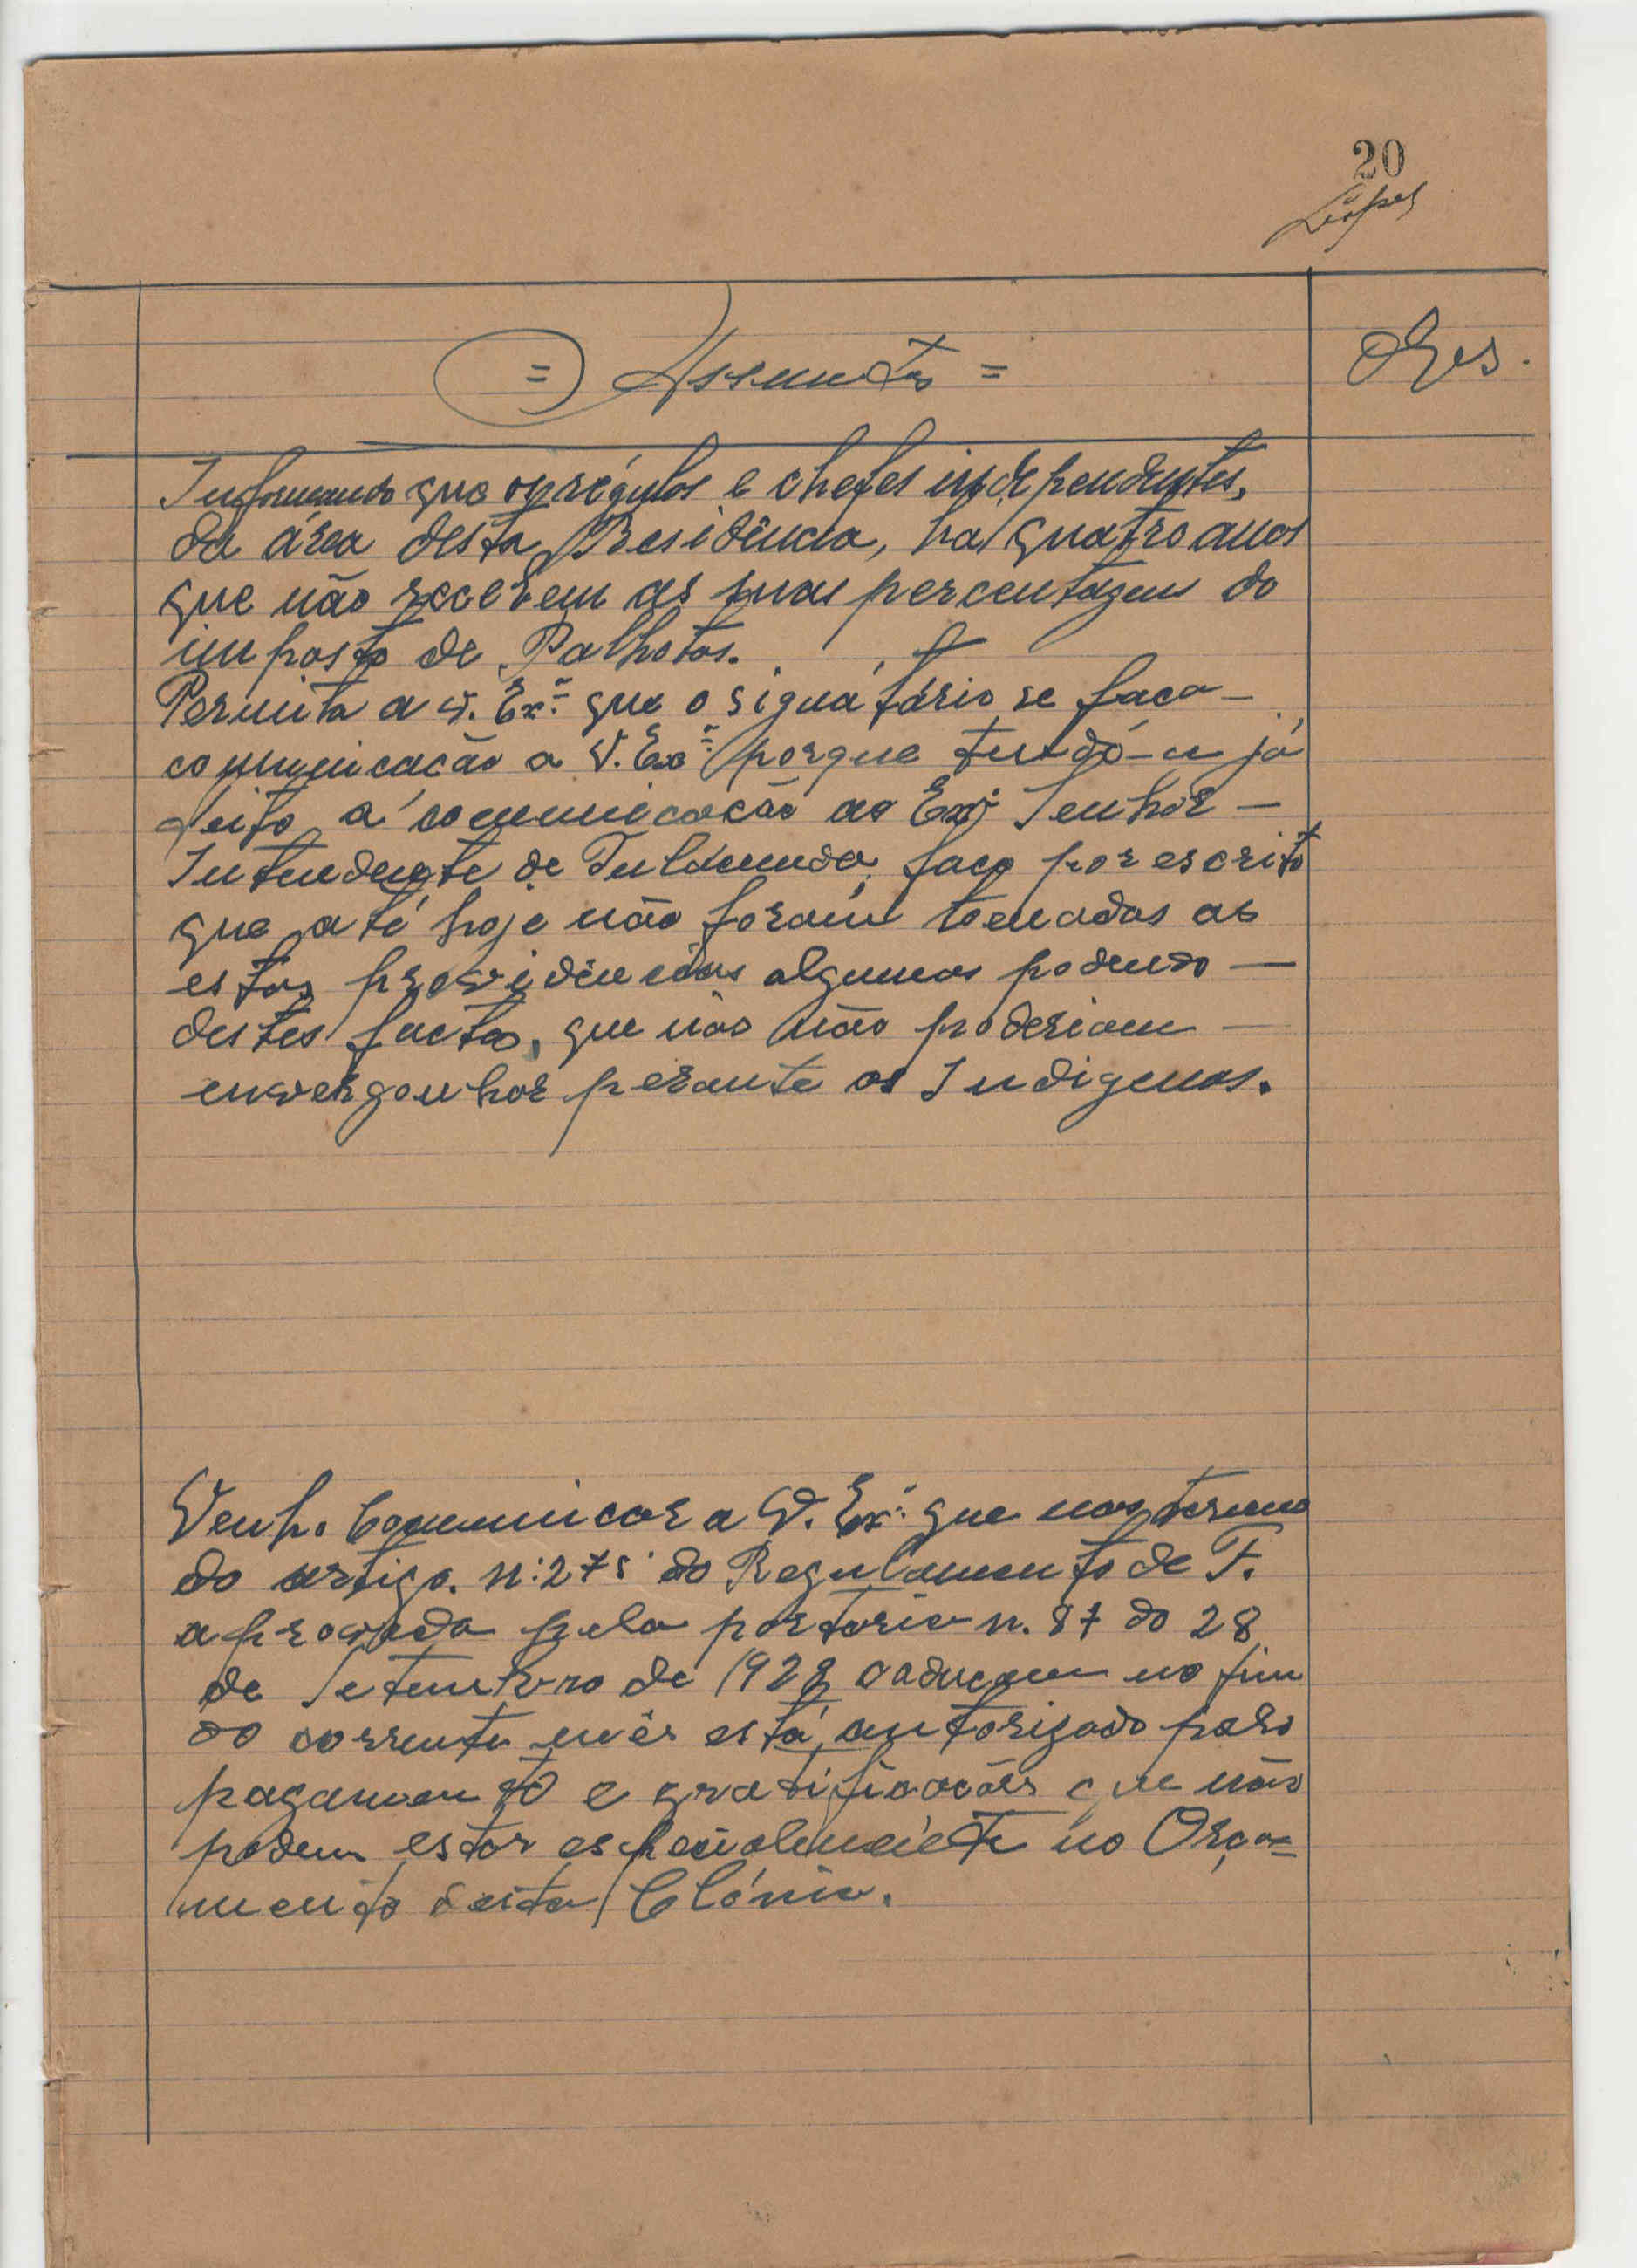 20
Lopes
= Assuntos =
Obs.
Informando que os régulos e chefes independentes,
da área desta Residência, ha quatro anos
que não recebem as suas percentagens do
imposto de Palhotas.
Permita a V. Exª que o signatário se faca
comunicacão a V. Exª porque tendo-a já
feito a comunicacão ao Exº Senhor
Intendente de faco por escrito
que até hoje não foram tomadas as
estas providências algumas podendo
destes factos, que nós não poderiam
envergonhar perante os Indigenas.
Venho Comunicar a V. Exª que nos termo
do artigo. nº 275 do Regulamento de F.
aprovada pela portaria n. 87 do 28
de Setembro de 1928 caducam no fim
do corrente mês está autorizado para
pagamento e gratificacões que não
podem estar especialmente no Orça=
mento desta Clónia.